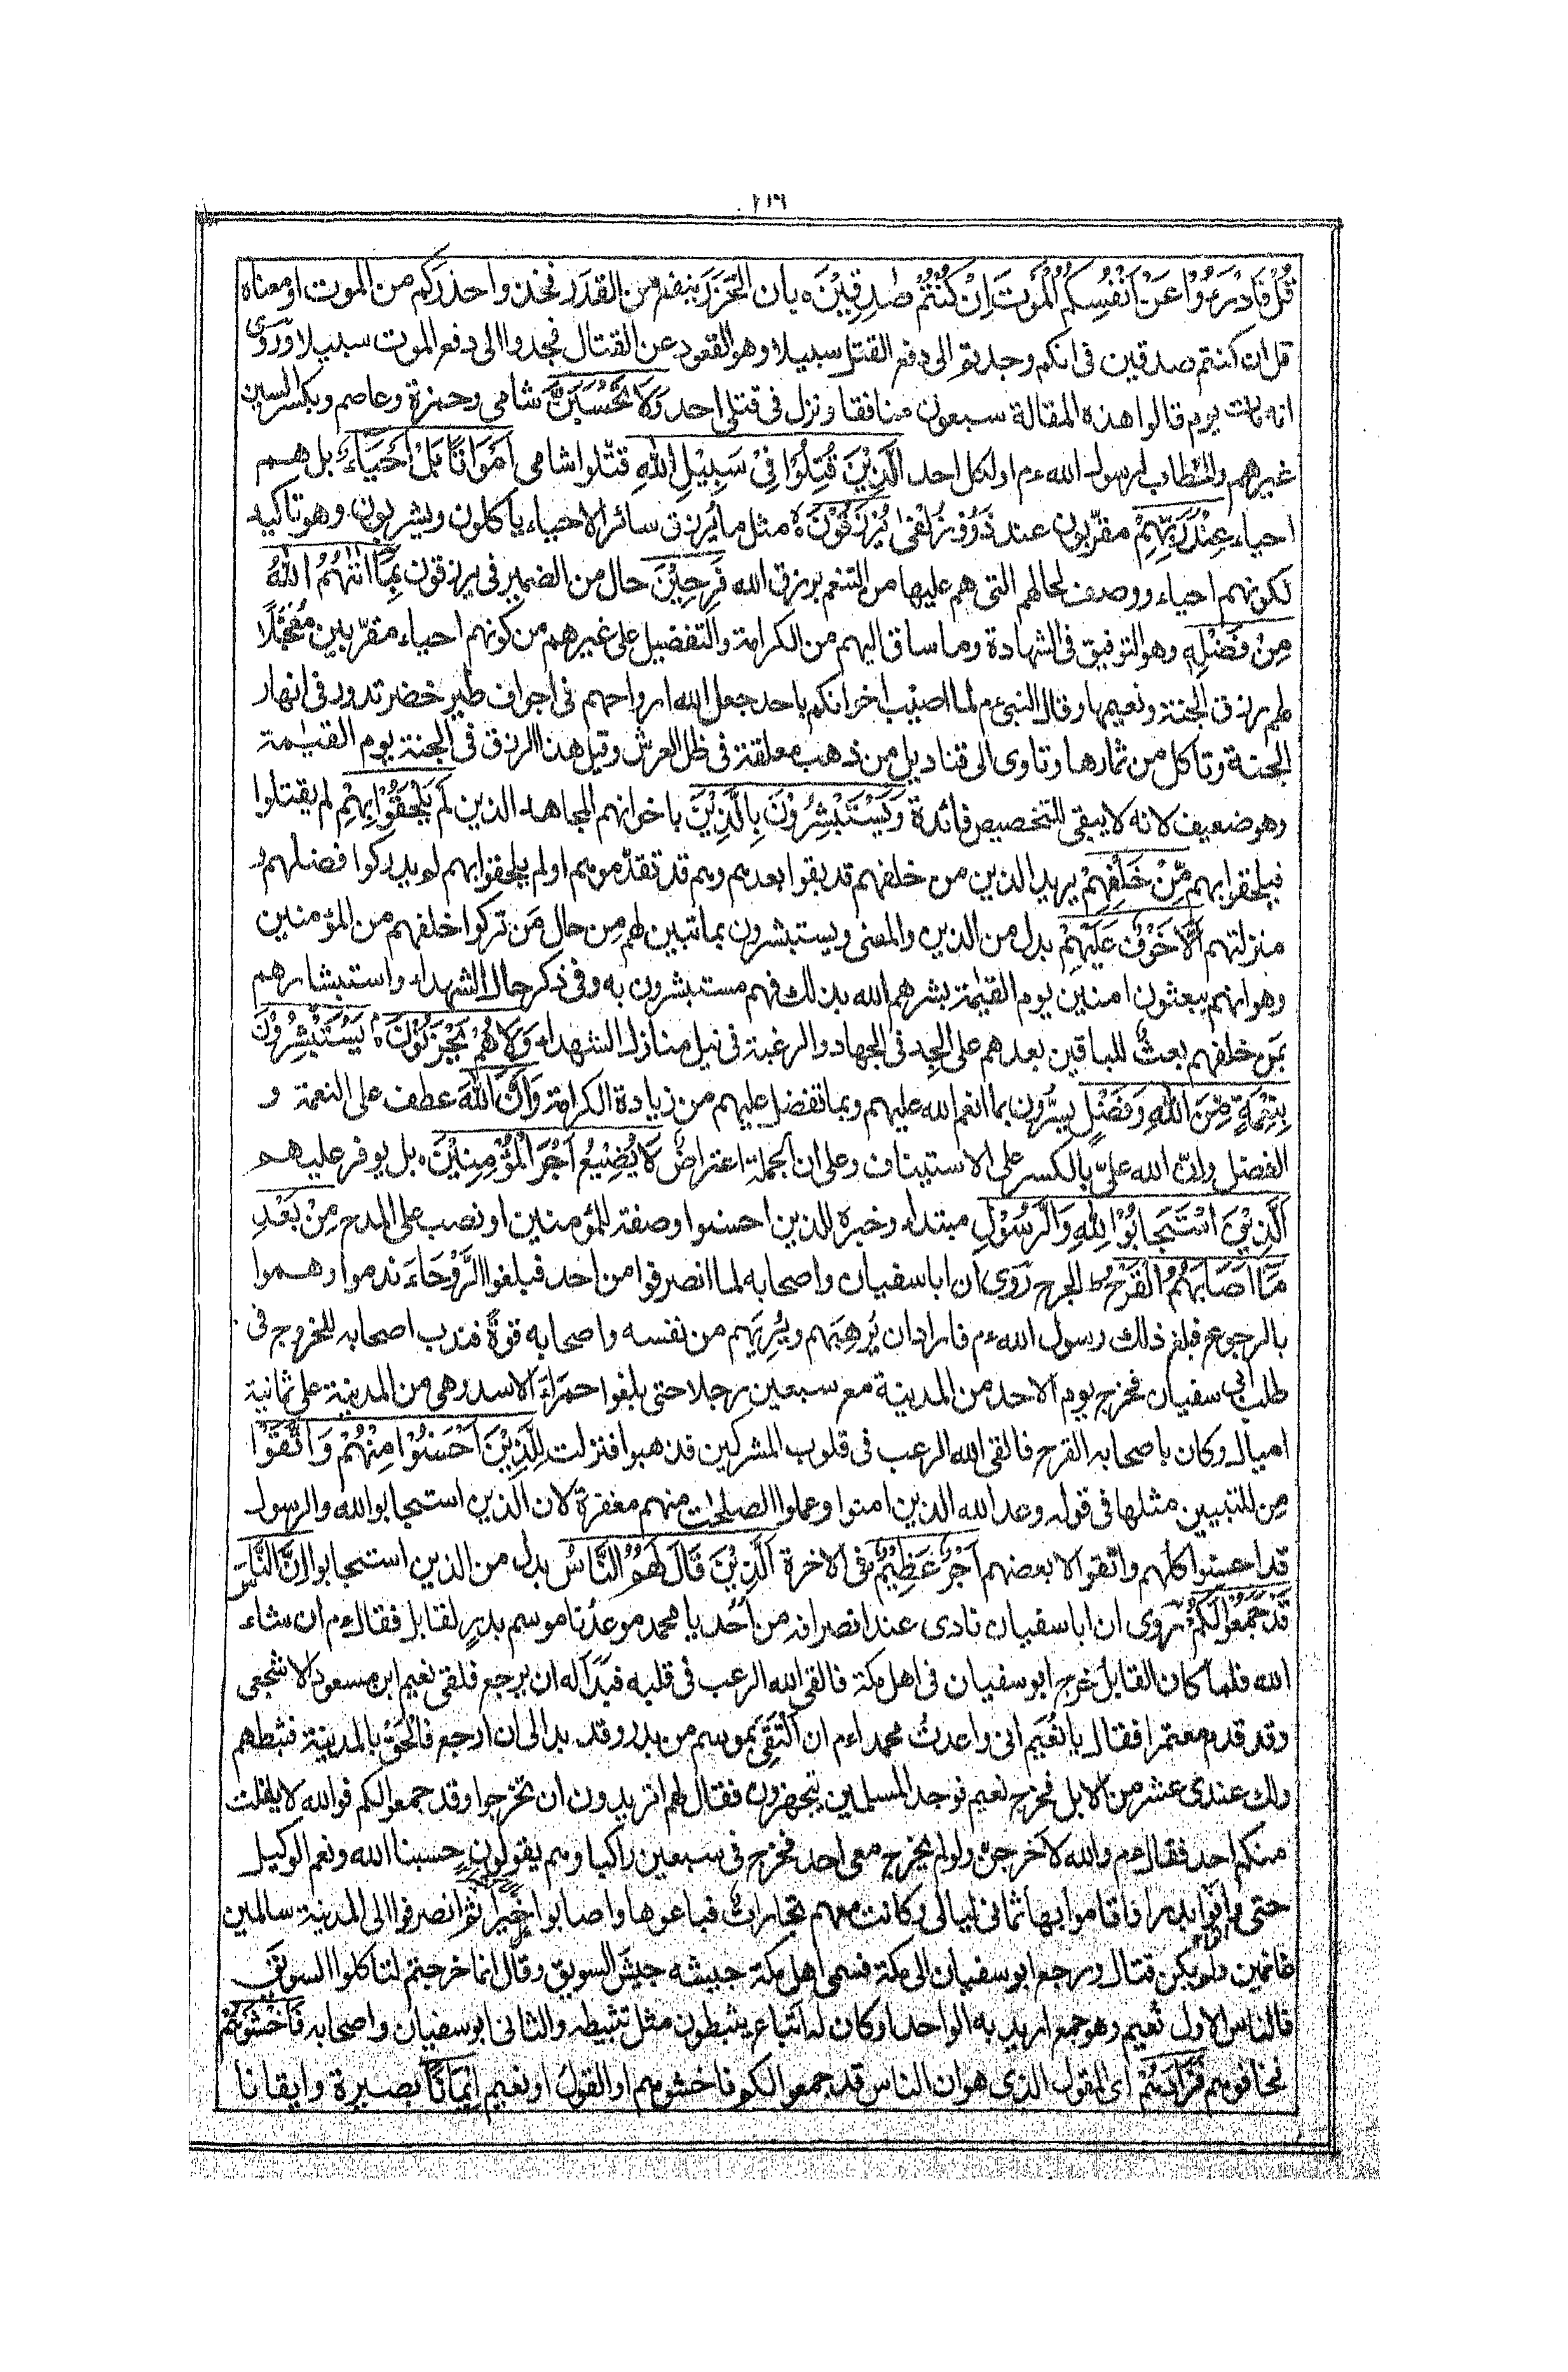 قُلْ فَادْرَءُوْا عَنْ اَنْفُسِكُمُ الْمَوْتَ اِنْ كُنْتُمْ صٰدِقِيْنَ ه بان الحَذَر ينفع من القدَر فخذوا حذركم من الموت او معناه
قل ان كنتم صدقين فى انكم وجدتم الى دفع القتل سبيلا وهو القعود عن القتال فجدوا الى دفع الموت سبيلا وروى
انه مات يوم قالوا هذه المقالة سبعون منافقا ونزل فى قتلى احد وَلَا تَحْسَبَنَّ شامى وحمزة وعاصم وبكسر السين
غيرهم والخطاب لرسول الله ءم او لكل احد الَّذِيْنَ قُتِلُوْا فِىْ سَبِيْلِ اللّٰهِ قتّلوا شامى اَمْوَاتًا بَلْ اَحْيَاءٌ بل هم
احياء عِنْدَ رَبِّهِمْ مقرّبون عنده ذَوُو زلفى يُرْزَقُوْنَ ه مثل ما يُرزق سائر الاحياء ياكلون ويشربون وهو تاكيد
لكونهم احياء ووصف لحالهم التى هم عليها من التنعم برزق الله فَرِحِيْنَ حال من الضمير فى يرزقون بِمَا اٰتٰهُمُ اللّٰهُ
مِنْ فَضْلِهٖ وهو التوفيق فى الشهادة وما ساق اليهم من الكرامة والتفضيل على غيرهم من كونهم احياء مقرّبين مُعَجَّلًا
لهم رزق الجنة ونعيمها وقال النبى ءم لما اصيب اخوانكم باحد جعل الله ارواحهم فى اجواف طير خضر تدور فى انهار
الجنة وتاكل من ثمارها وتاوى الى قناديل من ذهب معلقة فى ظل العرش وقيل هذا الرزق فى الجنة يوم القيٰمة
وهو ضعيف لانه لا يبقى للتخصيص فائدة وَيَسْتَبْشِرُوْنَ بِالَّذِيْنَ باخوانهم المجاهد الذين لَمْ يَلْحَقُوْا بِهِمْ لم يقتلوا
فيلحقوا بهم مِّنْ خَلْفِهِمْ يريد الذين من خلفهم قد بقوا بعدهم وهم قد تقدّموهم او لم يلحقوا بهم لم يدركوا فضلهم و
منزلتهم اَلَّا خَوْفٌ عَلَيْهِمْ بدل من الذين والمعنى ويستبشرون بما تبين لهم من حال مَن تركوا خلفهم من المؤمنين
وهو انهم يبعثون امنين يوم القيٰمة بشرهم الله بذلك فهم مستبشرون به وفى ذكر حال الشهداء واستبشارهم
بمَن خلفهم بعثٌ للباقين بعدهم على الجِد فى الجهاد والرغبة فى نيل منازل الشهداء وَلَا هُمْ يَحْزَنُوْنَ ه يَسْتَبْشِرُوْنَ
بِنِعْمَةٍ مِّنَ اللّٰهِ وَفَضْلٍ يسّرون بما انعم الله عليهم وبما تفضل عليهم من زيادة الكرامة وَاَنَّ اللّٰهَ عطف على النعمة و
الفضل وان الله علىّ بالكسر على الاستيناف وعلى ان الجملة اعتراضٌ لَا يُضِيْعُ اَجْرَ الْمُؤْمِنِيْنَ ه بل يوفر عليهم
اَلَّذِيْنَ اسْتَجَابُوْا لِلّٰهِ وَالرَّسُوْلِ مبتداء وخبره للذين احسنوا او صفة للمؤمنين او نصب على المدح مِنْ بَعْدِ
مَا اَصَابَهُمُ الْقَرْحُ ط الجرح رُوى ان ابا سفيان واصحابه لما انصرفوا من احد فبلغوا الرَّوْحَاءَ ندموا وهموا
بالرجوع فبلغ ذلك رسول الله ءم فاراد ان يُرهِبَهم ويُرِيَهم من نفسه واصحابه قوةً فندب اصحابه للخروج فى
طلب ابى سفيان فخرج يوم الاحد من المدينة مع سبعين رجلا حتى بلغوا حمرَاءَ الاسد وهى من المدينة على ثمانية
اميال وكان باصحابه القرح فالقى الله الرعب فى قلوب المشركين فذهبوا فنزلت لِلَّذِيْنَ اَحْسَنُوْا مِنْهُمْ وَاتَّقَوْا
مِن للتبيين مثلها فى قوله وعد الله الذين امنوا وعملوا الصلحٰت منهم مغفرة لان الذين استجابوا لله والرسول
قد احسنوا كلهم واتقوا لا بعضهم اَجْرٌ عَظِيْمٌ فى الاخرة اَلَّذِيْنَ قَالَ لَهُمُ النَّاسُ بدل من الذين استجابوا اِنَّ النَّاسَ
قَدْ جَمَعُوْا لَكُمْ روى ان ابا سفيان نادى عند انصرافه من اُحُد يا محمد موعدُنا موسم بدرٍ لقابل فقال ءم ان شاء
الله فلما كان القابل خرج ابو سفيان فى اهل مكة فالقى الله الرعب فى قلبه فبَدَا له ان يرجع فلقى نعيم ابن مسعود الاشجعى
وقد قدم معتمرا فقال يا نُعَيم انى واعدتُ محمدا ءم ان اَلتَقِىَ بموسم من بدر وقد بدا لى ان ارجع فالحَقْ بالمدينة فثبطهم
ولك عندى عشر من الابل فخرج نعيم فوجد المسلمين يتجهزون فقال لهم اتريدون ان تخرجوا وقد جمعوا لكم فوالله لا يفلت
منكم احد فقال ءم والله لاَخرجن ولو لم يخرج معى احد فخرج فى سبعين راكبا وهم يقولون حسبنا الله ونعم الوكيل
حتى وافوا بدرا فاقاموا بها ثمانى ليالى وكانت معهم تجاراتٌ فباعوها واصابوا خيرا ثم انصرفوا الى المدينة سالمين
غانمين ولم يكن قتال ورجع ابو سفيان الى مكة فسمى اهل مكة جيشه جيشَ السويق وقال انما خرجتم لتاكلوا السويق
فالناس الاول نُعيم وهو جمع اريد به الواحد او كان له اَتباع يثبطون مثل تثبيطه والثانى ابو سفيان واصحابه فَاخْشَوْهُمْ
فخافوهم فَزَادَهُمْ اى المقول الذى هو ان الناس قد جمعوا لكم فاخشوهم او القول او نعيم اِيْمَانًا بصيرة وايقانا